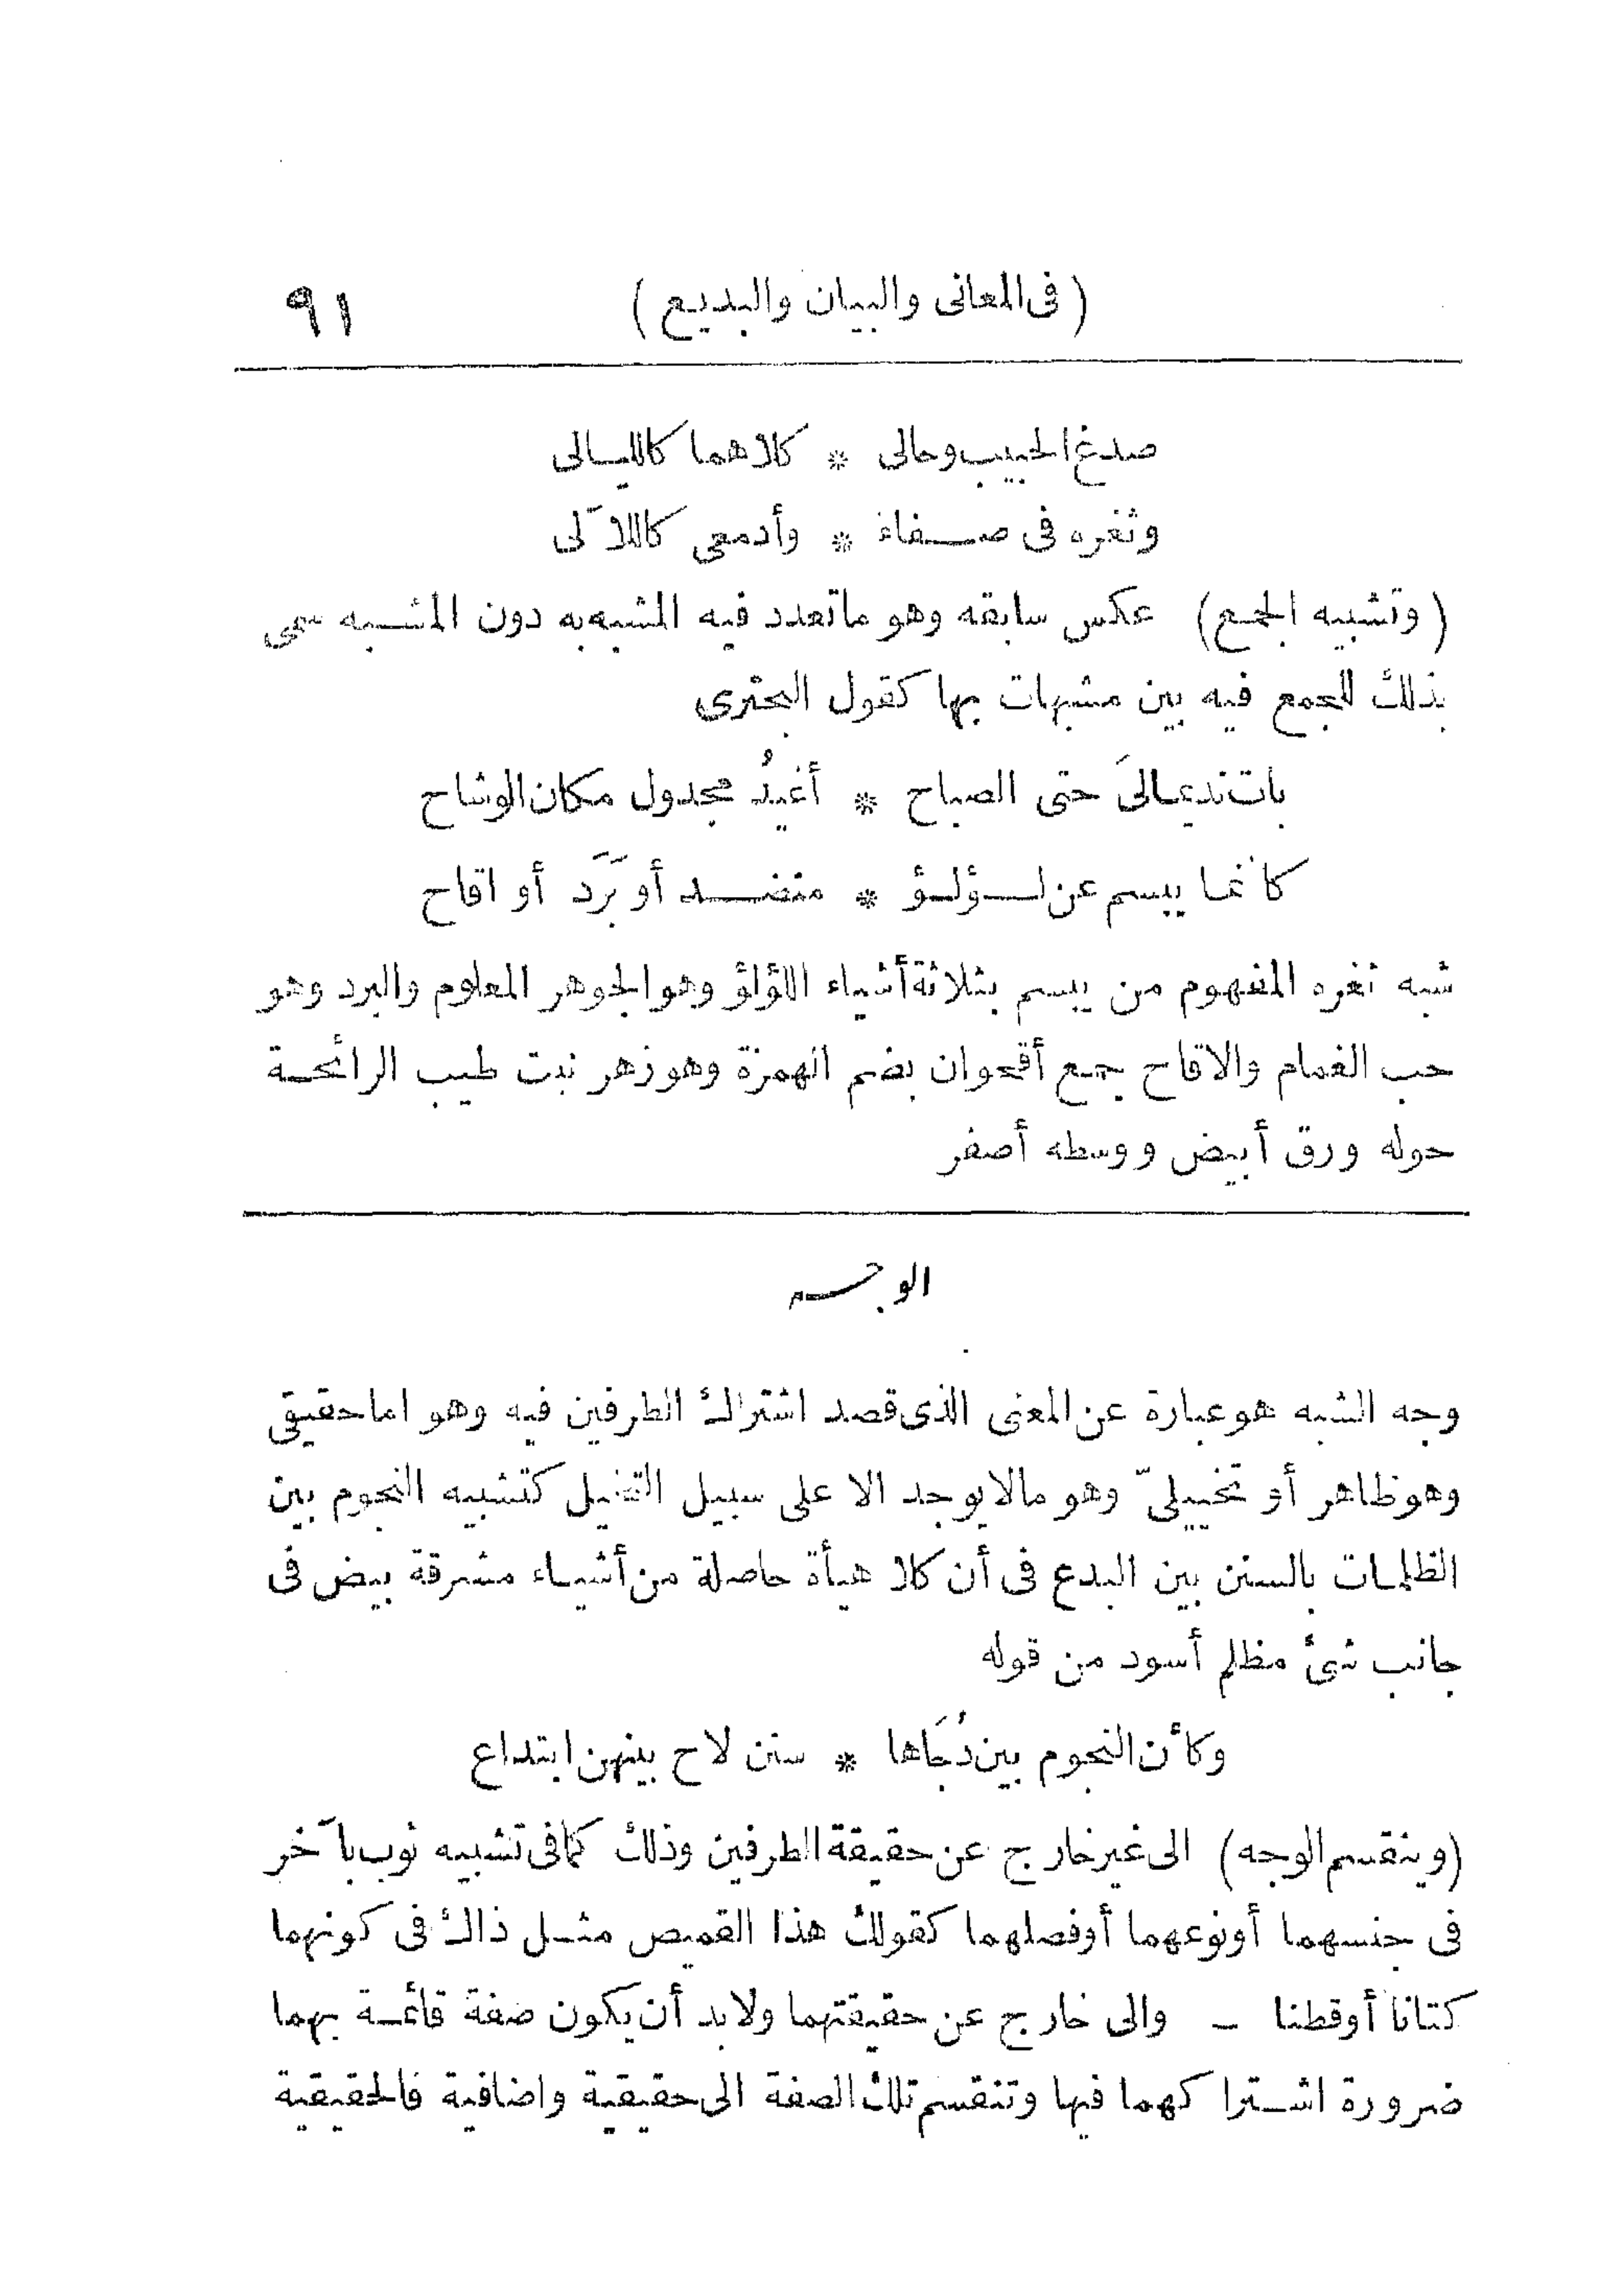 (فى المعانى والبيان والبديع) ٩١
صدغ الحبيب وحالى * كلاهما كالليالى
وثغره فى صفاء * وأدمعى كاللآلى
(وتشبيه الجمع) عكس سابقه وهو ماتعدد فيه المشبه به دون المشبه سمى
بذلك للجمع فيه بين مشبهات بها كقول البحترى
بات نديما لىَ حتى الصباح * أغيدُ مجدول مكان الوشاح
كأنما يبسم عن لؤلؤ * منضد أو بَرَد أو اقاح
شبه ثغره المفهوم من يبسم بثلاثة أشياء اللؤلؤ وهو الجوهر المعلوم والبرد وهو
حب الغمام والاقاح جمع أقحوان بضم الهمزة وهو زهر نبت طيب الرائحة
حوله ورق أبيض ووسطه أصفر
الوجه
وجه الشبه هو عبارة عن المعنى الذى قصد اشتراك الطرفين فيه وهو اما حقيقى
وهو ظاهر أو تخييلىّ وهو مالا يوجد الا على سبيل التخيل كتشبيه النجوم بين
الظلمات بالسنن بين البدع فى أن كلا هيأة حاصلة من أشياء مشرقة بيض فى
جانب شئ مظلم أسود من قوله
وكأن النجوم بين دُجَاها * سنن لاح بينهن ابتداع
(وينقسم الوجه) الى غير خارج عن حقيقة الطرفين وذلك كما فى تشبيه ثوب بآخر
فى جنسهما أونوعهما أوفصلهما كقولك هذا القميص مثل ذاك فى كونهما
كتانا أوقطنا – والى خارج عن حقيقتهما ولابد أن يكون صفة قائمة بهما
ضرورة اشتراكهما فيها وتنقسم تلك الصفة الى حقيقية واضافية فالحقيقية